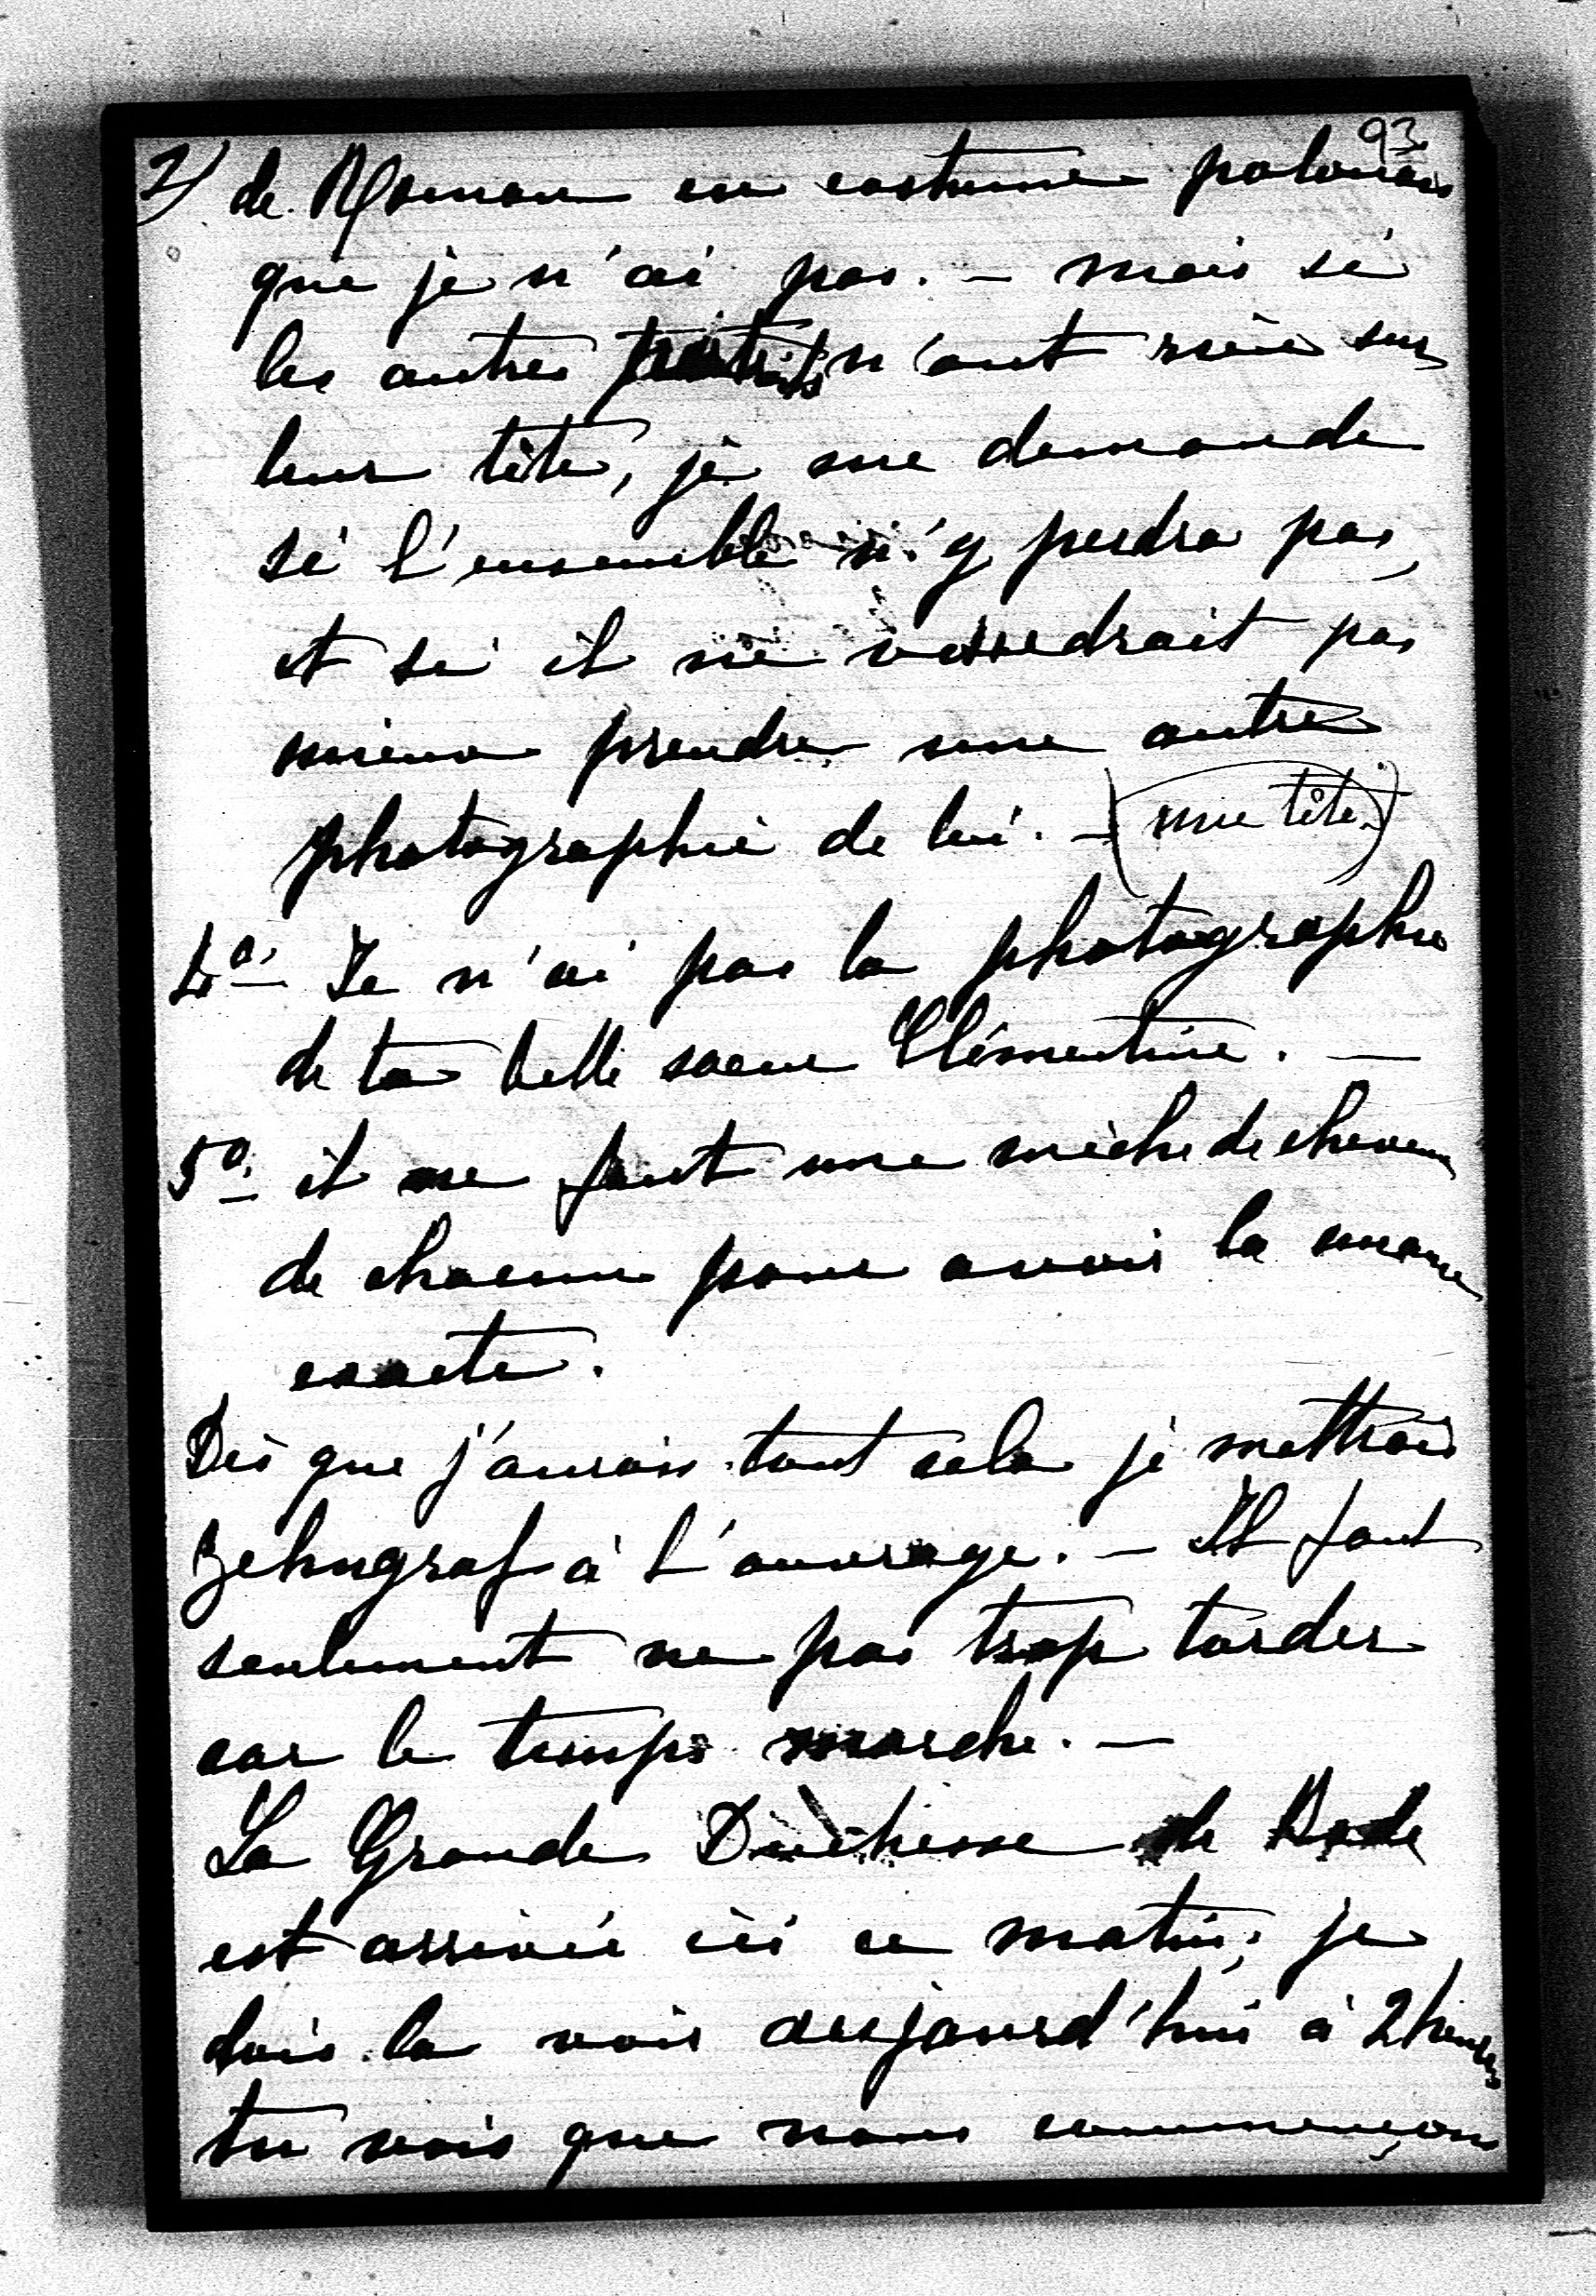 93
2/ de Roman en costume polonais
que je n'ai pas. - mais si
les autres portraits n'ont rien sur
leur tête, je me demande
si l'ensemble n'y perdra pas,
et si il ne vaudrait pas
mieux prendre une autre
photographie de lui. - (une tête)
4o- Je n'ai pas la photographie
de ta belle soeur Clémentine. -
5o- il me faut une mèche de cheveux
de chacun pour avoir la nuance
exacte.
Dès que j'aurais tout cela je mettrais
Zehngraf à l'ouvrage. - Il faut
seulement ne pas trop tarder
car le temps marche. -
La Grande Duchesse de Bade
est arrivée ici ce matin; je
dois la voir aujourd'hui à 2 heures
tu vois que nous commençons